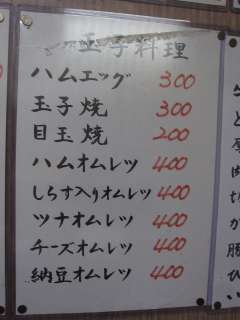 玉子料理
ハムエッグ 300
玉子焼 300
目玉焼 200
ハムオムレツ 400
しらす入りオムレツ 400
ツナオムレツ 400
チーズオムレツ 400
納豆オムレツ 400